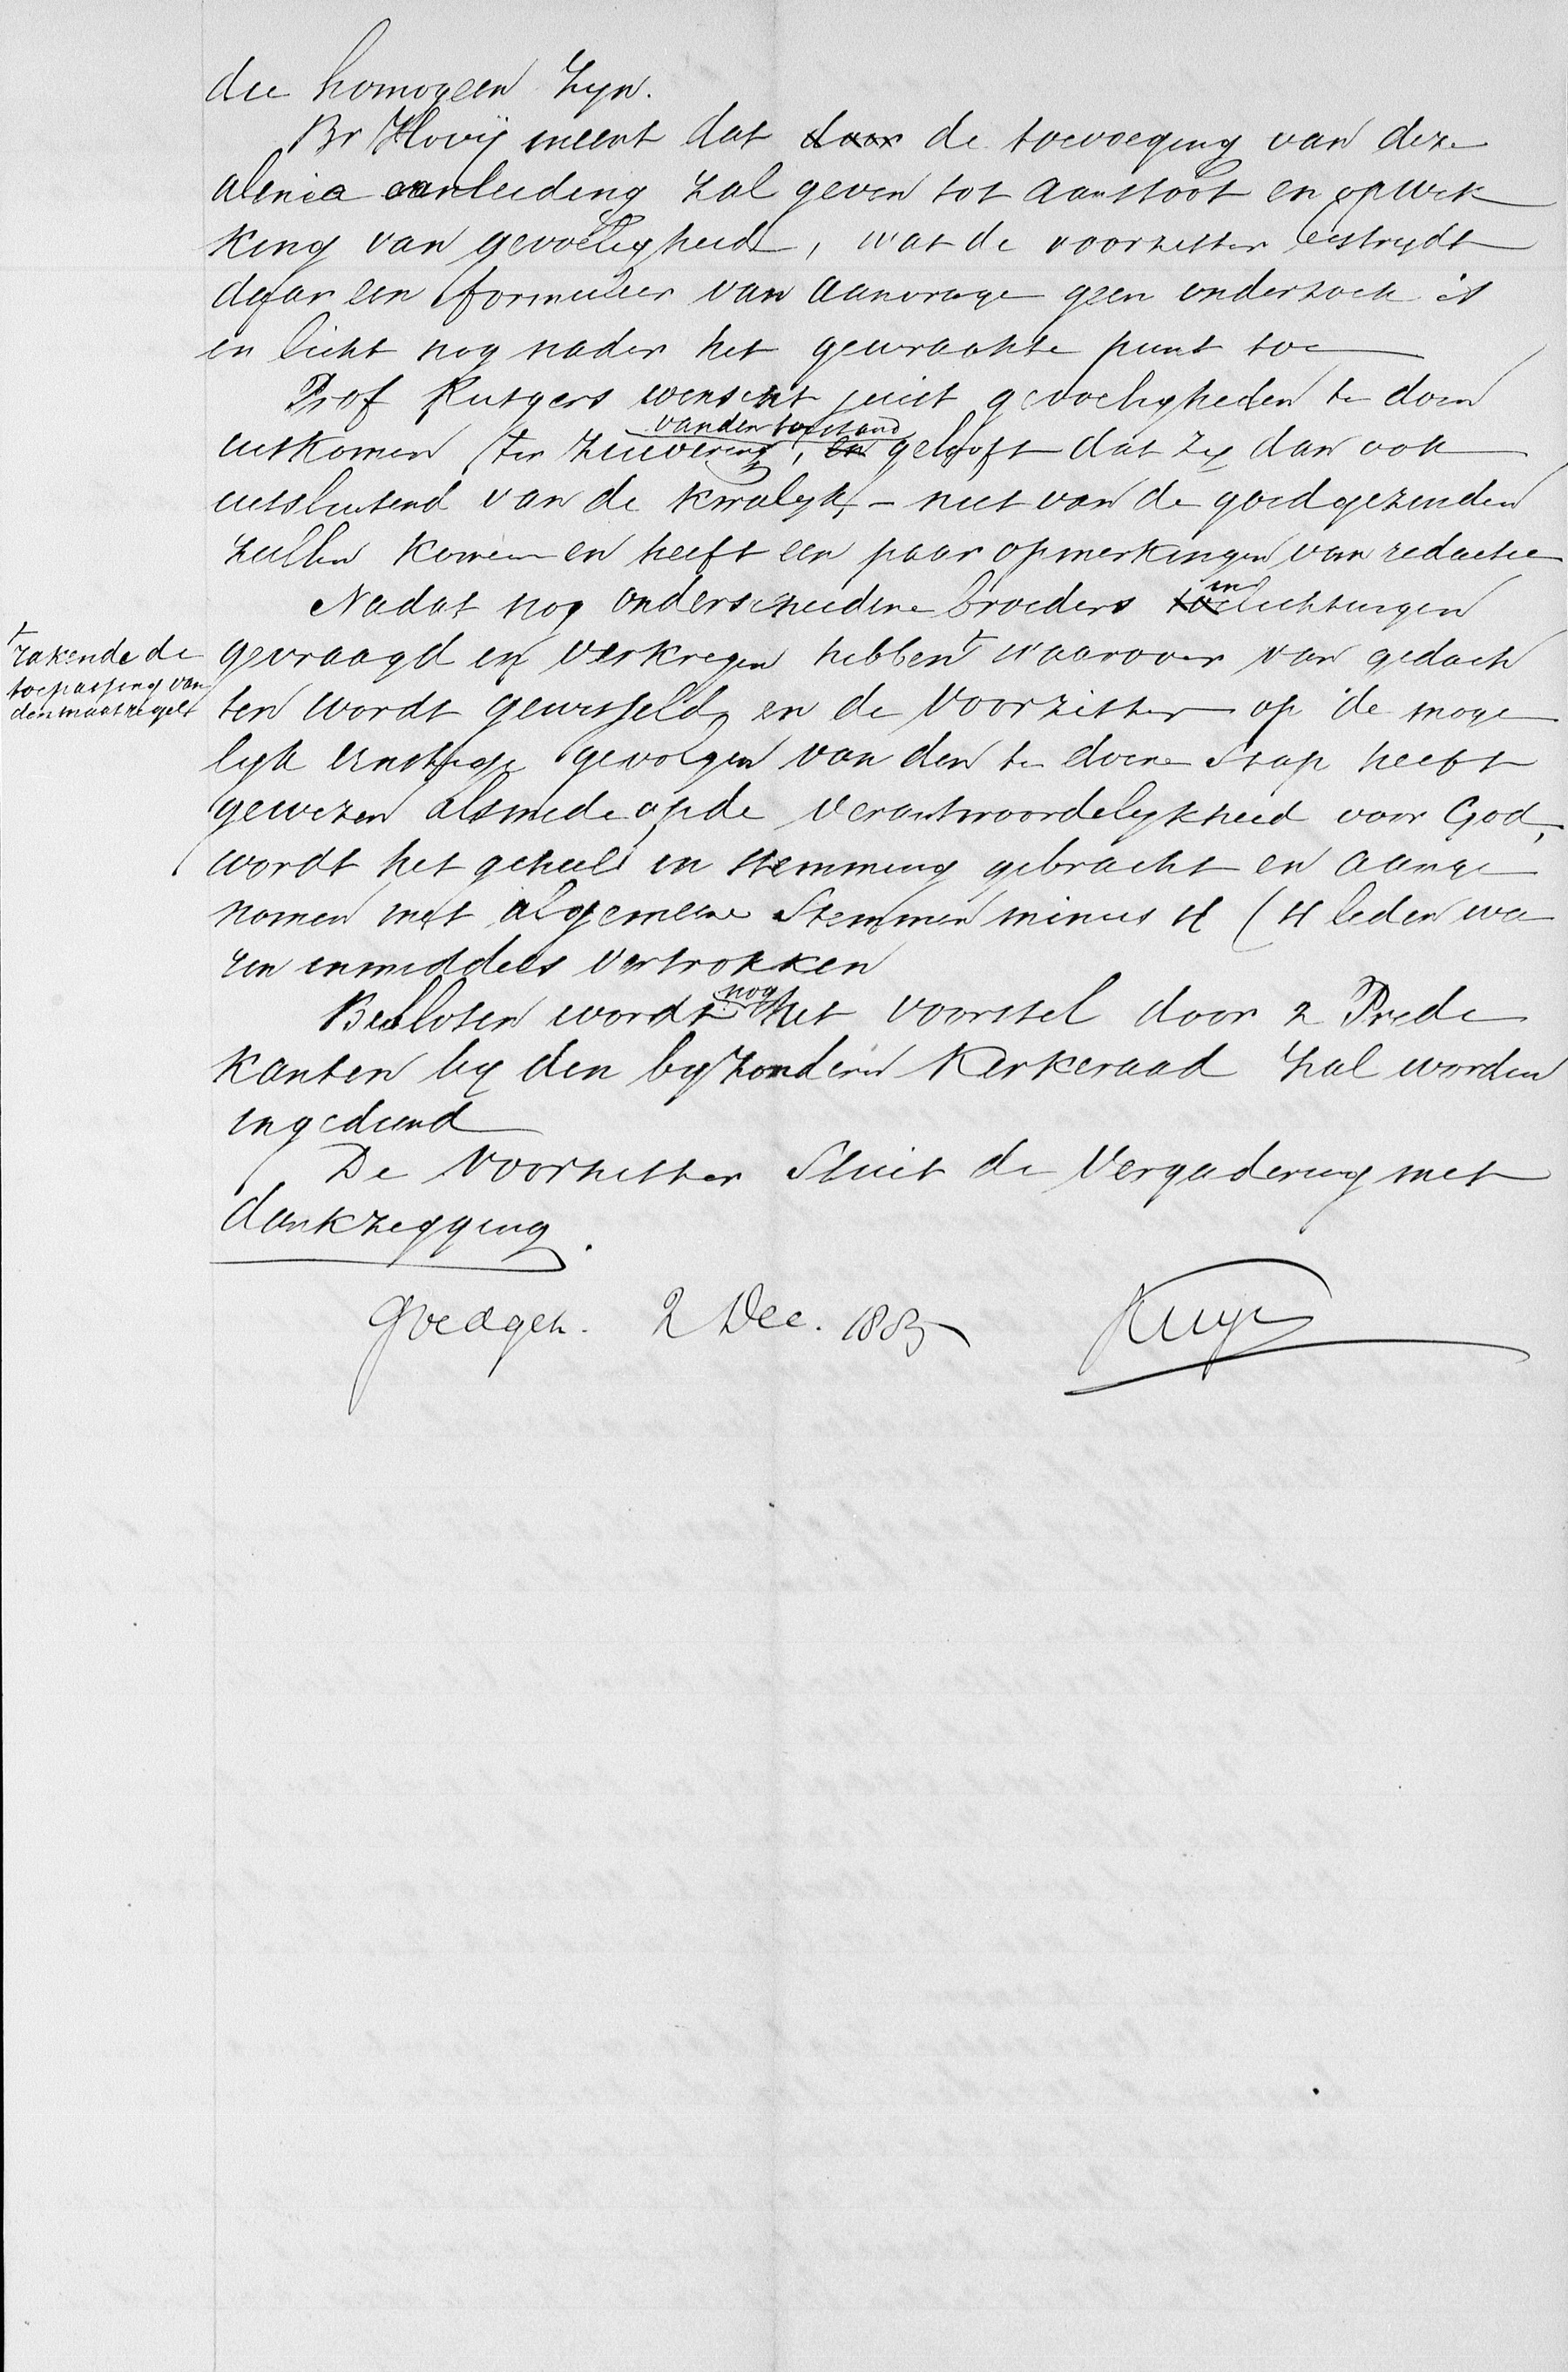 die homogeen zyn.
Br Hovÿ meent dat door de toevoeging van deze
alinea aanleiding zal geven tot aanstoot en opwek
king van gevoeligheid, wat de voorzitter bestrydt
daar een formulier van aanvrage geen onderzoek is
en licht nog nader het gewraakte punt toe
Prof Rutgers wenscht juist gevoeligheden te doen
van den toestand
uitkomen ter zuivering, en gelooft dat zy dan ook
uitsluitend van de kwalyk, - niet van de goedgezinden
zullen komen en heeft een paar opmerkingen van redactie
in
Nadat nog onderscheidene broeders toelichtingen
gevraagd en verkregen hebben + waarover van gedach
+ rakende de
toepassing van
den maatregel
ten wordt gewisseld, en de Voorzitter op de moge
lyk ernstige gevolgen van den te doene Stap heeft
gewezen alsmede op de verantwoordelykheid voor God,
wordt het geheel in stemming gebracht en aange
nomen met algemeene Stemmen minus 4 (4 leden wa
ren inmiddels vertrokken
nog
Besloten wordt het voorstel door 2 Predi
kanten by den byzonderen Kerkeraad zal worden
ingediend
De Voorzitter Sluit de Vergadering met
dankzegging.
Goedgek. 2 Dec. 1885 Kuyper